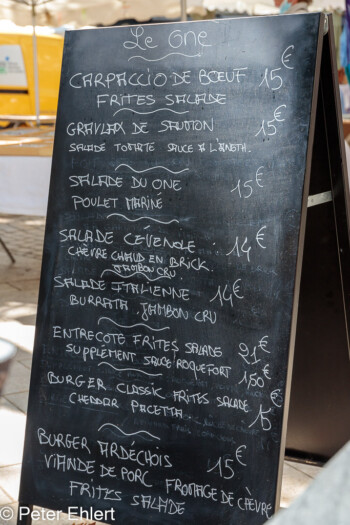 Le One
CARPACCIO DE BŒUF 15€
FRITES SALADE
GRAVLAX DE SAUMON 15€
SALADE TOMATE SAUCE A L'ANETH.
SALADE DU ONE 15€
POULET MARINE
SALADE CÉVENOLE 14€
CHÈVRE CHAUD EN BRICK.
JAMBON CRU.
SALADE ITALIENNE 14€
BURRATA. JAMBON CRU
ENTRECOTE FRITES SALADE 21€
SUPPLÉMENT SAUCE ROQUEFORT 1,50€
BURGER CLASSIC FRITES SALADE 15€
CHEDDAR PANCETTA.
BURGER ARDÉCHOIS 15€
VIANDE DE PORC FROMAGE DE CHÈVRE
FRITES SALADE
© Peter Ehlert